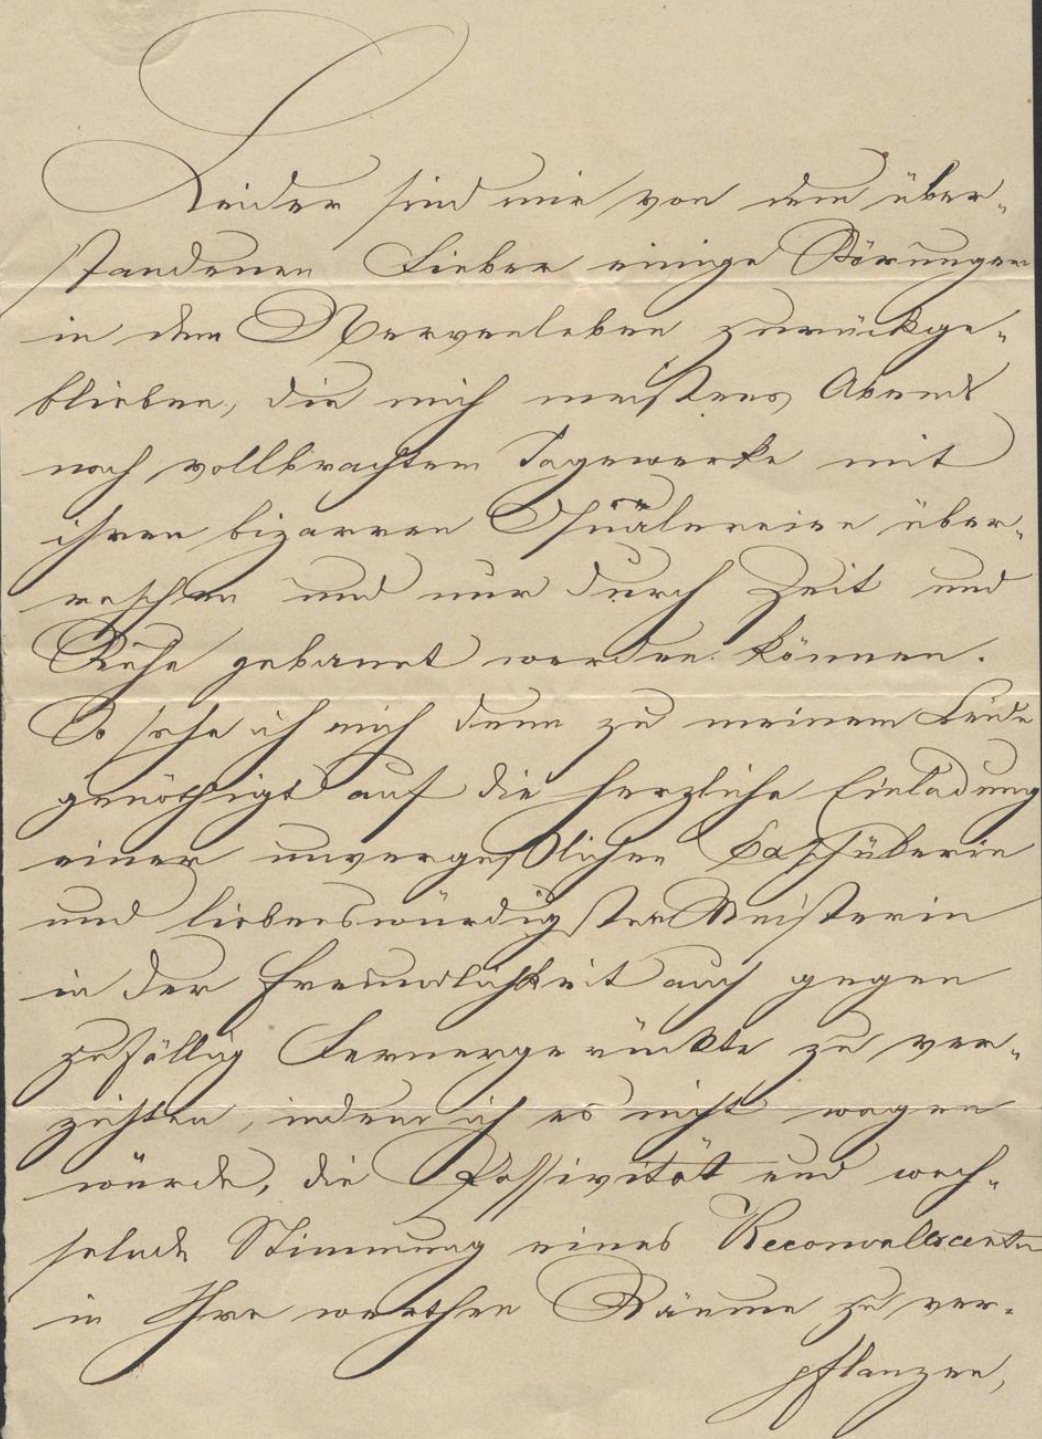 Leider sind mir von dem über-
standenen Fieber einige Störungen
in dem Nervenleben zurückge-
blieben, die mich meistens Abends
nach vollbrachtem Tagewerke mit
ihren bizarren Quälereien über-
raschen und nur durch Zeit und
Ruhe gebannt werden können.
So sehe ich mich denn zu meinem Leide
genöthigt auf die herzliche Einladung
einer unvergeßlichen
und liebenswürdigsten Meisterin
in der Freundlichkeit auch gegen
zufällig Fernergerückte zu ver-
zichten, indem ich es nicht wagen
würde, die Passivität und wech-
selnde Stimmung eines Reconvalescenten
in Ihre werthen Räume zu ver-
pflanzen,